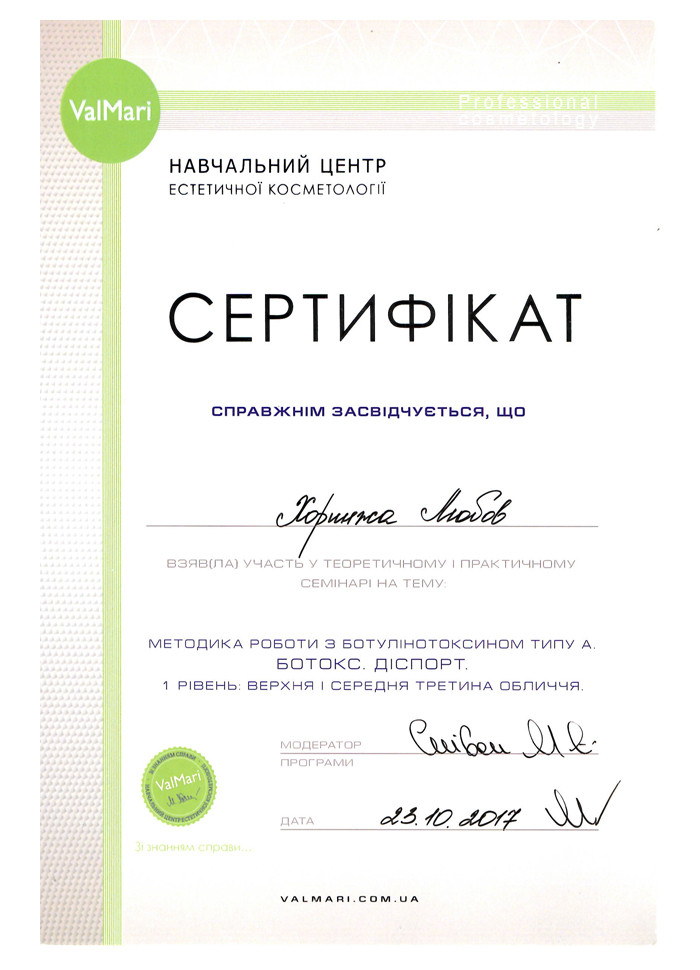 ValMari
Professional
cosmetology
НАВЧАЛЬНИЙ ЦЕНТР
ЕСТЕТИЧНОЇ КОСМЕТОЛОГІЇ
СЕРТИФІКАТ
СПРАВЖНІМ ЗАСВІДЧУЄТЬСЯ, ЩО
Хоринжа Любов
ВЗЯВ(ЛА) УЧАСТЬ У ТЕОРЕТИЧНОМУ І ПРАКТИЧНОМУ
СЕМІНАРІ НА ТЕМУ:
МЕТОДИКА РОБОТИ З БОТУЛІНОТОКСИНОМ ТИПУ А.
БОТОКС. ДІСПОРТ.
1 РІВЕНЬ: ВЕРХНЯ І СЕРЕДНЯ ТРЕТИНА ОБЛИЧЧЯ.
МОДЕРАТОР
ПРОГРАМИ
ДАТА 23.10.2017
ЗІ ЗНАННЯМ СПРАВИ
ValMari
НАВЧАЛЬНИЙ ЦЕНТР ЕСТЕТИЧНОЇ КОСМЕТОЛОГІЇ
Зі знанням справи...
VALMARI.COM.UA